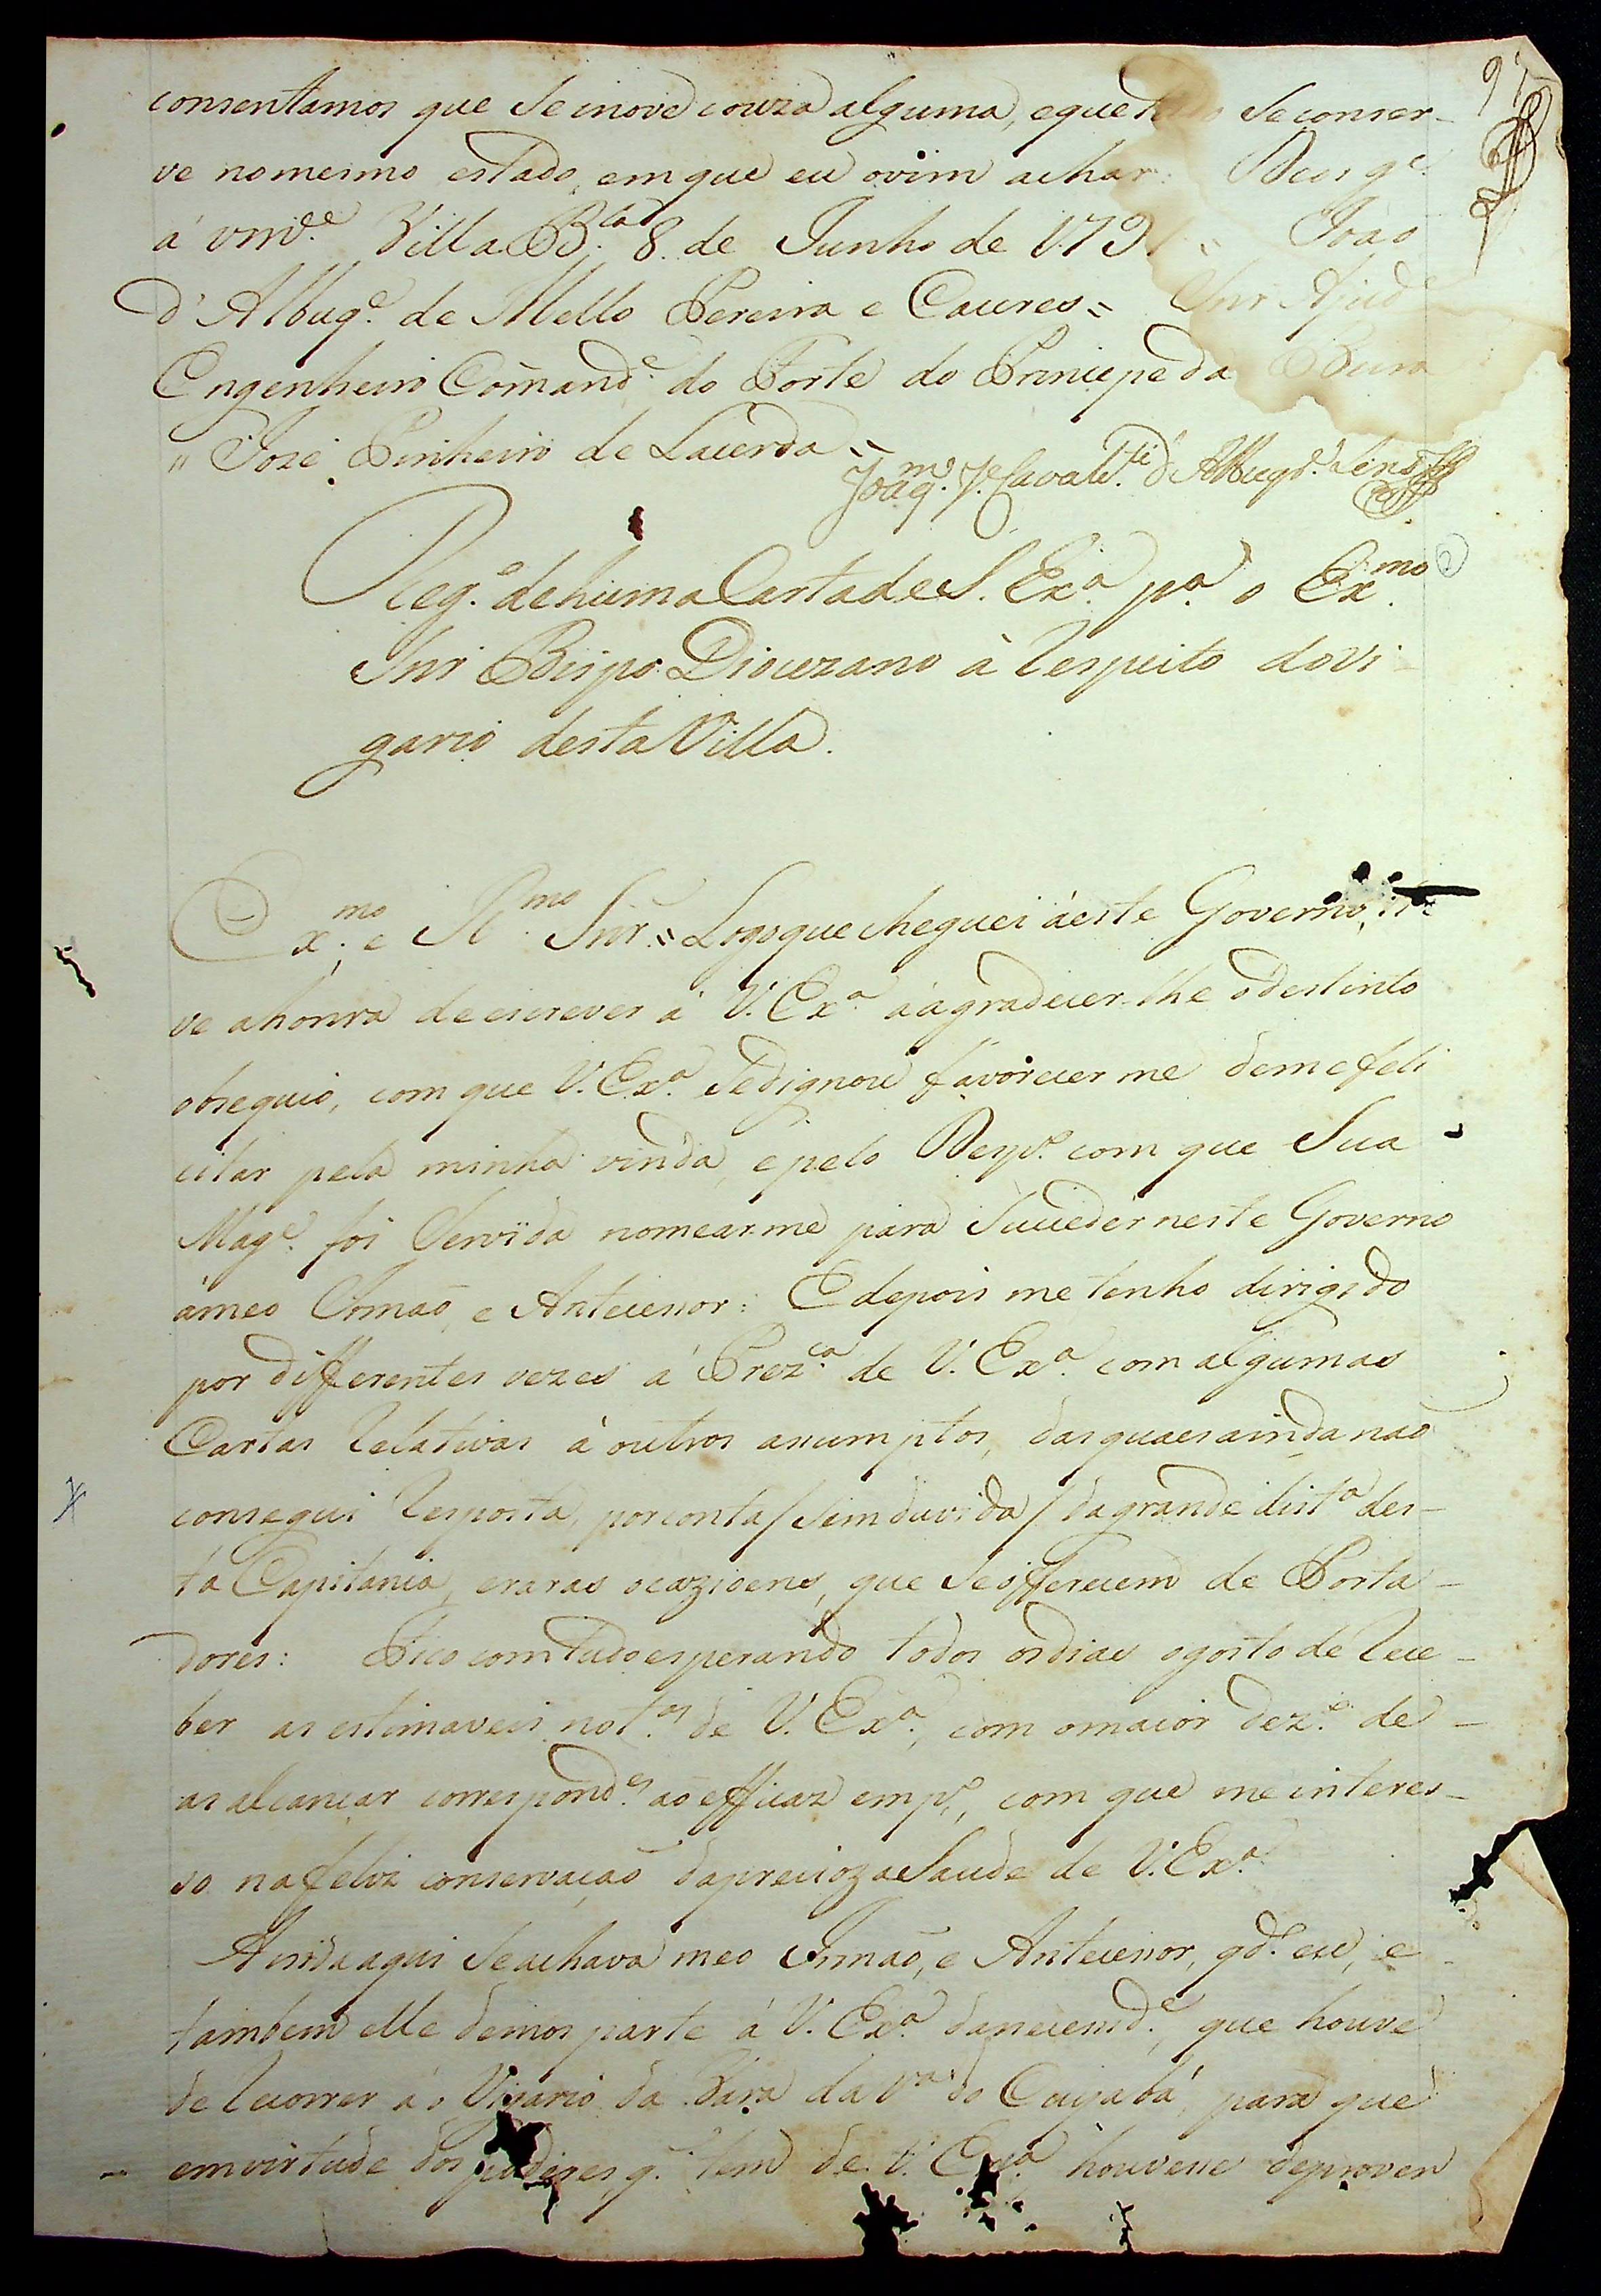 97
consentamos que se inove couza alguma, e que tudo se conser-
ve no mesmo estado, em que eu o vim achar: Deos g.e
á vm.ce Villa B.la 8. de Junho de 179 = Joao
d'Albuq.e de Mello Pereira e Caceres = Snr Ajud.e
Engenheiro Comand.e do Forte do Principe da Beira
" José Pinheiro de Lacerda =
Joaq.m J.e Cavalc.ti d'Albuq.e Lins
Reg.o de huma Carta de S. Ex.a p.a o Ex.mo
Snr Bispo Diocezano à respeito do Vi-
gario desta Villa.
Ex.mo e R.mo Snr. = Logo que cheguei á este Governo, ti-
ve a honra de escrever á V. Ex.a á agradecer-lhe o destinto
obsequio, com que V. Ex.a Se dignou favorecer me de me feli
citar pela minha vinda, e pelo Dezp.o com que Sua
Mag.e foi Servida nomear-me para Succeder neste Governo
á meo Irmaõ, e Antecessor: E depois me tenho dirigido
por differentes vezes á Prez.ca de V. Ex.a com algumas
Cartas relativas á outros assumptos, das quaes ainda naõ
consegui resposta, por conta / sem duvida / da grande dist.a des-
ta Capitania, e raras ocazioens, que se offerecem de Porta-
dores: Fico com tudo esperando todos os dias o gosto de rece-
ber as estimaveis not.as de V. Ex.a, com o maior dez.o de
as alcançar correspond.es ao efficaz emp.o, com que me interes-
so na feliz conservaçaõ da precioza Saude de V. Ex.a
Ainda aqui Se achava meo Irmaõ, e Antecessor, q.do eu, e
tambem elle demos parte á V. Ex.a da necessid.e, que houve
de recorrer ao Vigario da Vara da V.a do Cuyabá, para que
em virtude dos poderes, q. tem de V. Ex.a houvesse de prover